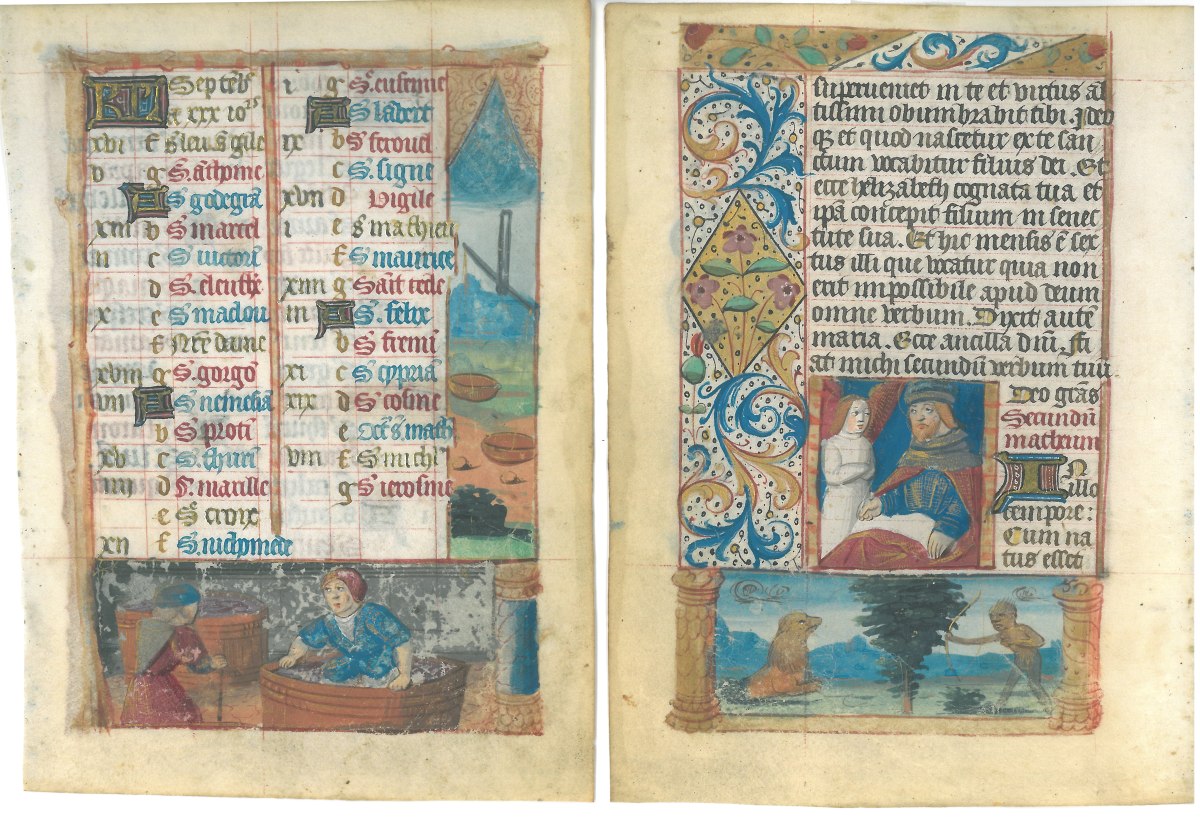 KL Septēbr
a xxx io²⁵
xvi f S. leu S. gile
v g S. āthoine
A S godegrā
xiii b S marcel
ii c S victorī
d S. eleuthe
x e S maclou
f Nr̄e dame
xviii g S. gorgō
vii A S nemesiā
b S proti
xv c S.
iiii d S. marille
e Sᵉ croix
xii f S. nichomede
i g Sᵉ eufemie
A S ladbert
ix b S feroeul
c S. signe
xvii d vigile
i e S mathieu
f S maurice
xiiii g Sāit tecle
iii A S. felix
b S firmi
xi c S cypriā
xix d S cosme
e Oct̄ S. math
viii f S michl̄
g S ieroſme
superveniet in te et virtus al
tissimi obumbrabit tibi. Ideo
q̄ et quod nascetur ex te san
ctum vocabitur filius dei. Et
ecce helizabeth cognata tua et
ipā concepit filium in senec
tute sua. Et hic mensis ē sex
tus illi que vocatur quia non
erit impossibile apud deum
omne verbum. Dixit autē
maria. Ecce ancilla dn̄i. fi
at michi secundū verbum tuū.
Deo grās
Secundū
matheum
IN
illo
tempore:
Cum na
tus esset